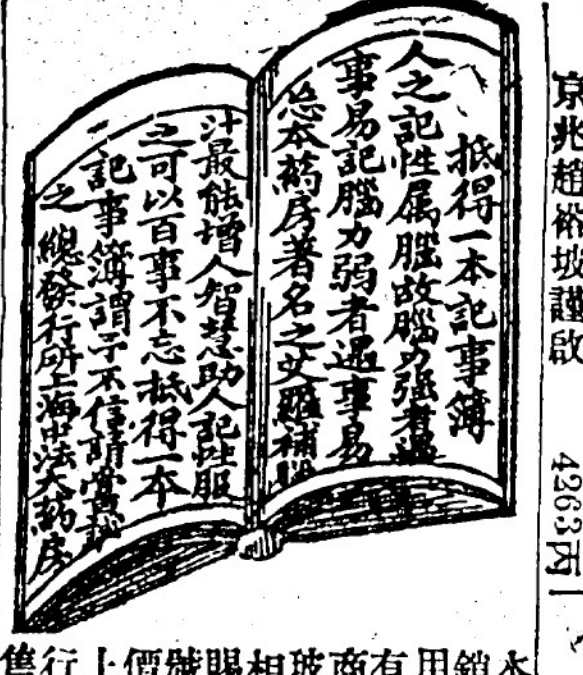 京兆趙裕坡謹啟 4263丙
抵得一本記事簿
人之記性属腦故腦力强者遇
事易記腦力弱者遇事易
忘本葯房著名之艾羅補腦
汁最能增人智慧助人記性服
之可以百事不忘抵得一本
記事簿謂予不信請嘗試
之 總發行所上海中法大葯房
售行上價號賜相玻商有用鎖本